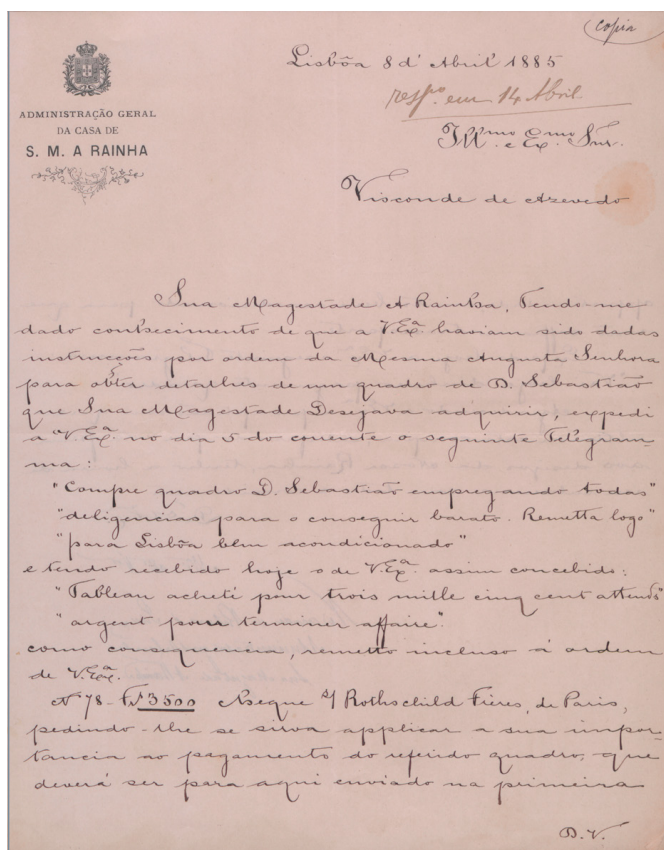 copia
Lisbôa 8 d'Abril 1885
resp.º em 14 Abril.
ADMINISTRAÇÃO GERAL
DA CASA DE
S. M. A RAINHA
Ill.mo e Ex.mo Snr.
Visconde de Azevedo
Sua Magestade A Rainha, Tendo-me
dado conhecimento de que a V. Ex.ª haviam sido dadas
instrucções por ordem da Mesma Augusta Senhora
para obter detalhes de um quadro de D. Sebastião
que Sua Magestade Desejava adquirir, expedi
a V. Ex.ª no dia 5 do corrente o seguinte Telegram-
ma:
"Compre quadro D. Sebastião empregando todas"
"deligencias para o conseguir barato. Remetta logo"
"para Lisbôa bem acondicionado"
e tendo recebido hoje o de V. Ex.ª assim concebido:
"Tableau acheti pour trois mille cinq cent attends"
"argent pour terminer affaire".
como consequencia, remetto incluso á ordem
de V. Ex.ª
Nº 78 - Fs 3500 Cheque s/ Rothschild Frères, de Paris,
pedindo-lhe se sirva applicar a sua impor-
tancia ao pagamento do referido quadro, que
deverá ser para aqui enviado na primeira
D.V.